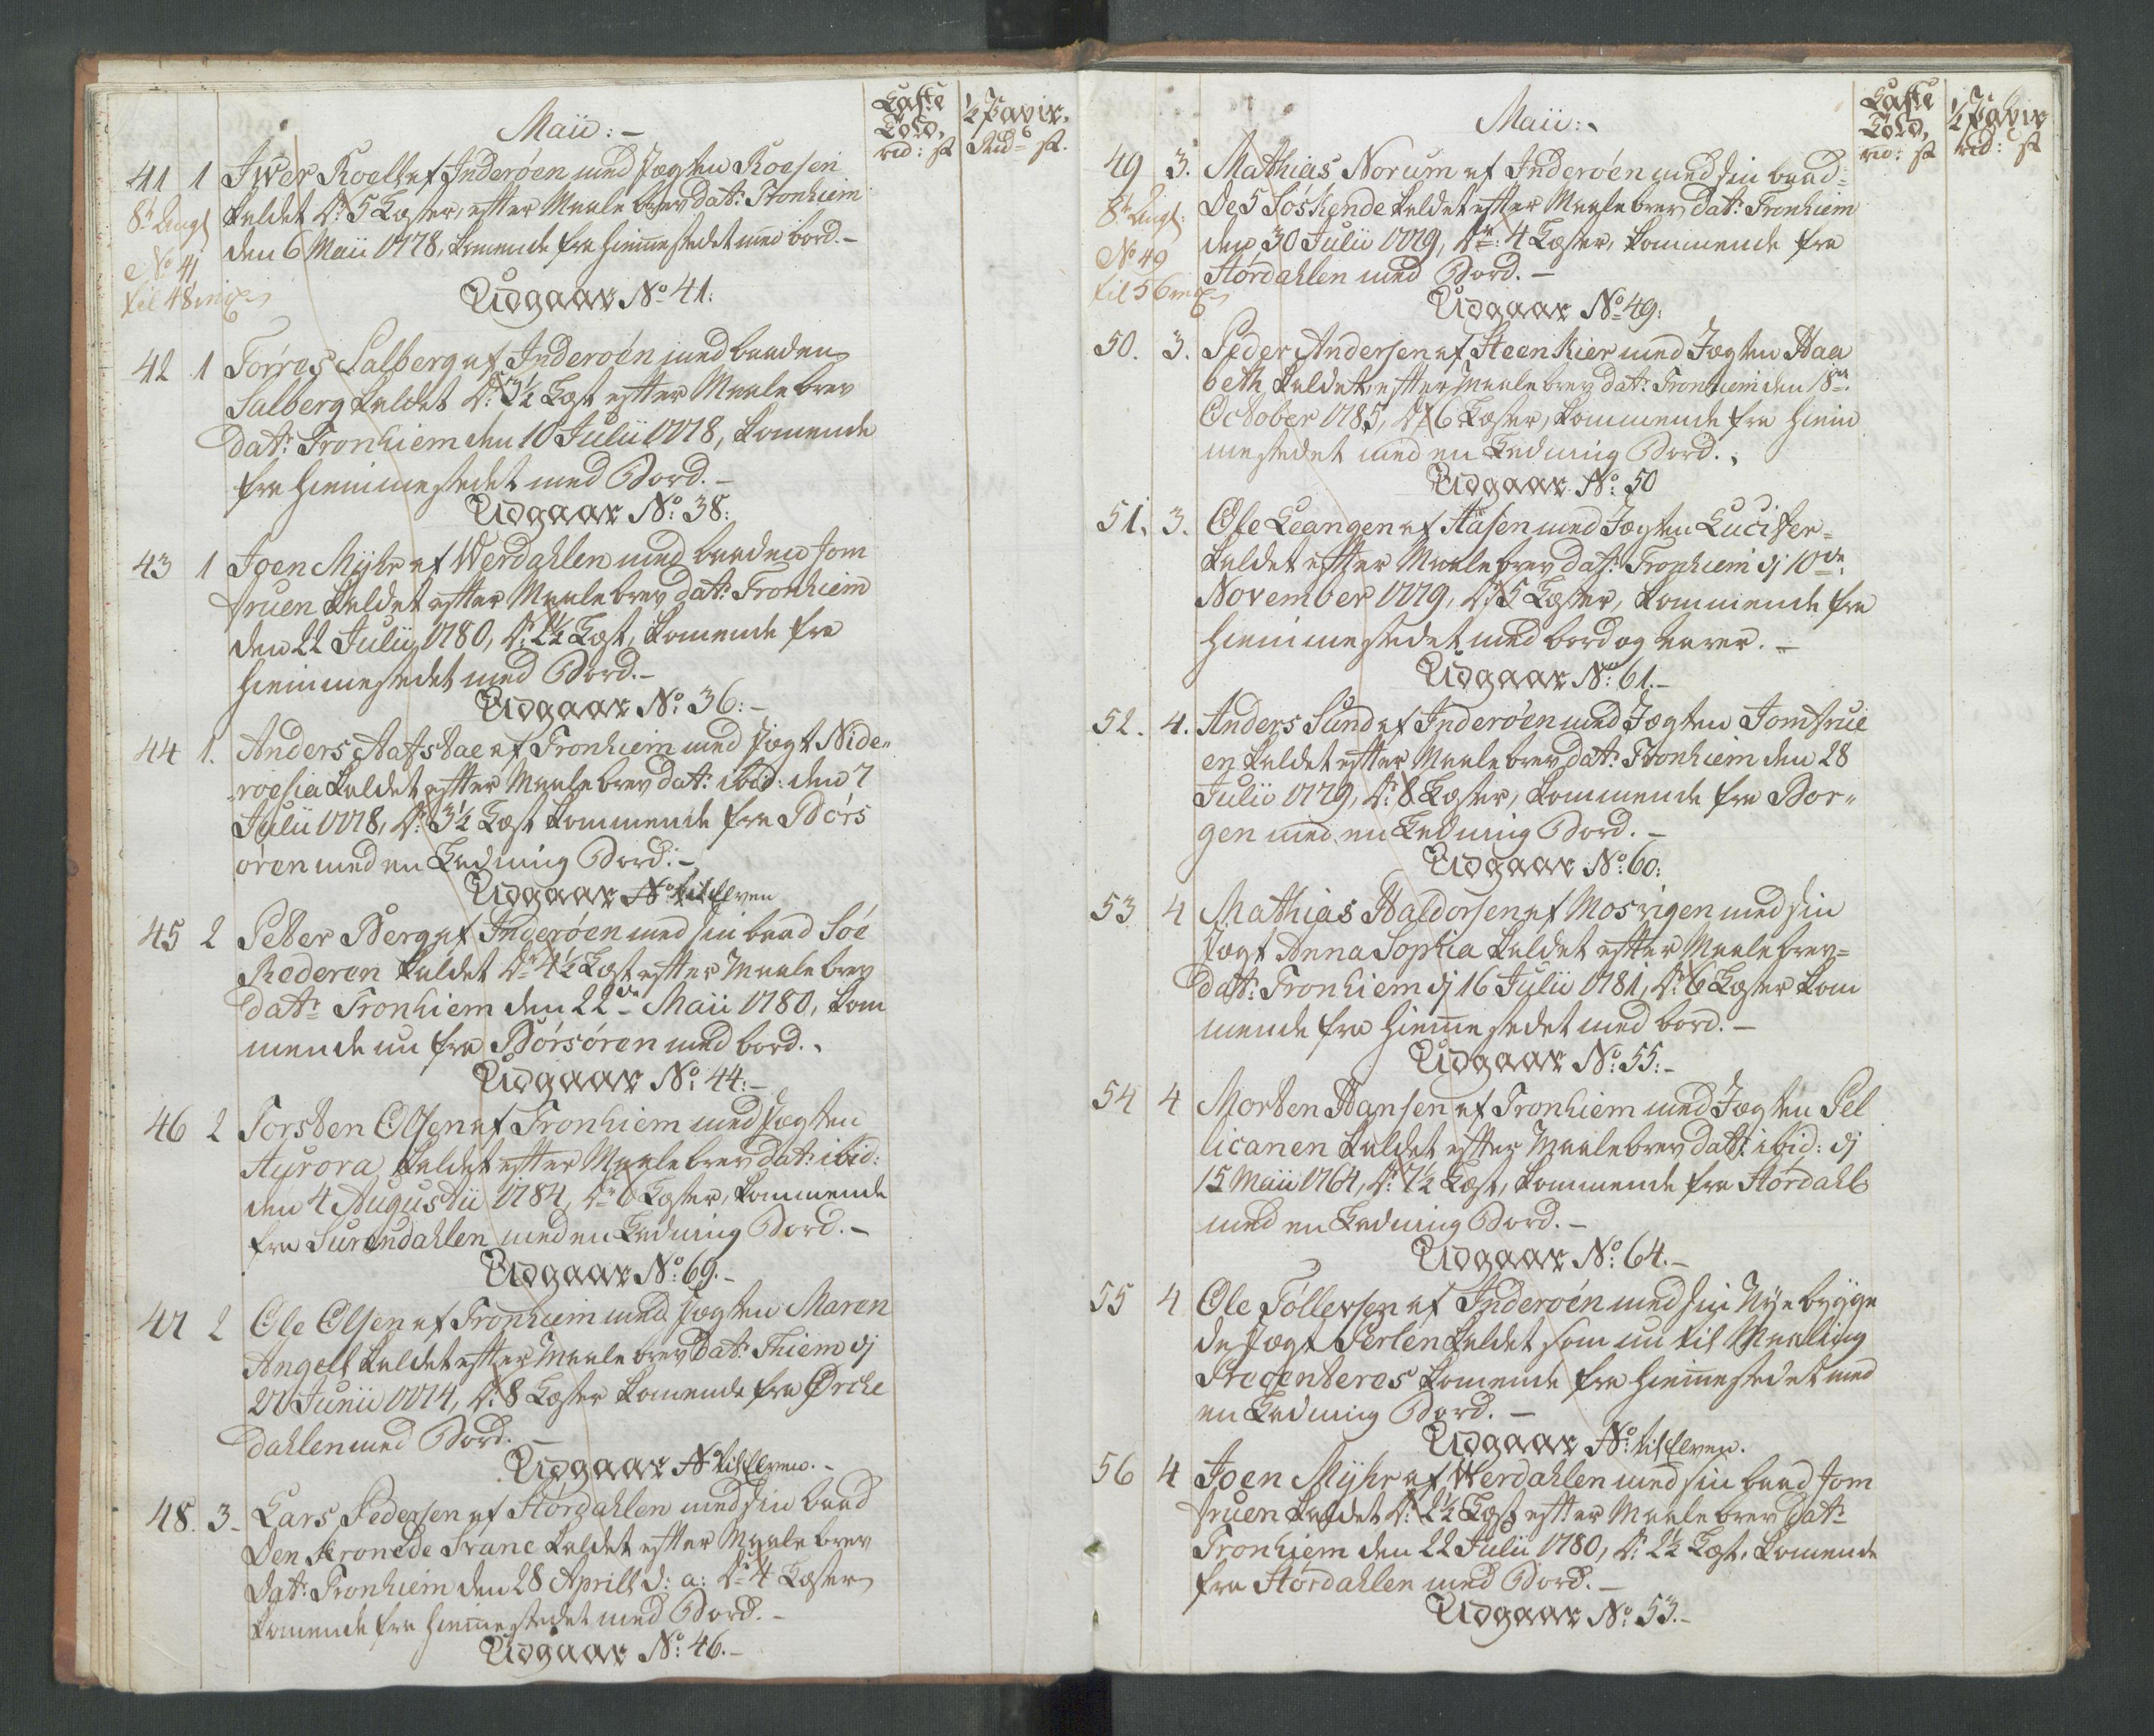 Maii: –
Læste Told, ½ Pavir.
rd: ß Rd: ß.
41 1 Iver Roel af Inderöen med Jægten Roesen
8t Angl kaldet dr: 5 Læster, efter Maalebrev dat: Tronhiem
den 6 Maii 1778, komende fra hiemmestedet med bord. –
No 41
til 48 incl
Udgaar No 41:
42 1 Torres Salberg af Inderöen med baaden
Salberg kaldet dr: 3½ Læst efter Maalebrev
dat: Tronhiem den 10 Julii 1778, komende
fra hiemmestedet med Bord. –
Udgaar No: 38:
43 1 Joen Myhr af Werdahlen med baaden Jom
fruen kaldet efter Maalebrev dat: Tronhiem
den 22 Julii 1780, dr: 2½ Læst, komende fra
hiemmestedet med Bord. –
Udgaar No: 36: –
44 1. Anders Aafstae af Tronhiem med Jægt Nide„
„roesia kaldet efter Maalebrev dat: ibid: den 7
Julii 1778, dr: 3½ Læst kommende fra Börs
ören med en Ladning Bord. –
Udgaar No til Elven
45 2 Peter Berg af Inderöen med sin baad Söe
Rederen kaldet dr: 4½ Læst efter Maalebrev
dat: Tronhiem den 22de Maii 1780, kom
mende nu fra Börsören med bord. .
Udgaar No: 44: –
46 2 Torsten Olsen af Tronhiem med Jægten
Aurora kaldet efter Maalebrev dat: ibid:
den 4 Augustii 1784, dr: 6 Læster, kommende
fra Surendahlen med en Ladning Bord. –
Udgaar No: 69. –
47 2 Ole Olsen af Tronhiem med Jægten Maren
Angell kaldet efter Maalebrev dat: Thiem dj
27 Junii 1774, dr: 8 Læster komende fra Orche
dahlen med Bord. –
Udgaar No til Elven. –
48. 3. Lars Pedersen af Stördahlen med sin baad
Den Kronede Svane kaldet efter Maalebrev
dat: Tronhiem den 28 Aprill d: a: dr: 4 Læster
komende fra hiemmestedet med Bord. –
Udgaar No: 46. –
Maii: .
Læste Told, ½ Pavir
rd: ß rd: ß
49 3. Mathias Norum af Inderöen med sin baad =
8t Angl: De 5 Söskende kaldet efter Maalebrev dat: Tronhiem
den 30 Julii 1779, dr: 4 Læster, kommende fra
No 49
Stördahlen med Bord. –
til 56 incl
Udgaar No 49:
50. 3. Peder Andersen af Steenkier med Jægten Haa
beth kaldet, efter Maalebrev dat: Tronhiem den 18de
October 1785, dr: 6 Læster, kommende fra hiem
mestedet med en Ladning Bord. .
Udgaar No: 50
51. 3. Ole Leangen af Aasen med Jægten Lucifer =
kaldet efter Maalebrev dat: Tronhiem dj 10de
November 1779, dr: 5 Læster, kommende fra
hiemmestedet med bord og varer. –
Udgaar No: 61. –
52. 4. Anders Sund af Inderöen med Jægten Jomfrue
en kaldet efter Maalebrev dat: Tronhiem den 28
Julii 1779, dr: 8 Læster, kommende fra Bor„
gen med en Ladning Bord. –
Udgaar No: 60:
53 4 Mathias Haldorsen af Mosvigen med sin
Jægt Anna Sophia kaldet efter Maalebrev =
dat: Tronhiem dj 16 Julii 1781, dr: 6 Læster kom
mende fra hiemmestedet med bord. –
Udgaar No: 55: –
54 4 Morten Hansen af Tronhiem med Jægten Pel
licanen kaldet efter Maalebrev dat: ibid: dj
15 Maii 1764, dr: 7½ Læst, kommende fra Stördahl:
med en Ladning Bord. –
Udgaar No: 64. –
55 4 Ole Föllersen af Inderöen med sin Nye bygge
de Jægt Perlen kaldet som nu til Maaling
Præsenteres komende fra hiemmestedet med
en Ladning Bord. –
Udgaar No: til Elven.
56 4 Joen Myhr af Werdahlen med sin baad Jom
fruen kaldet dr: 2½ Læst efter Maalebrev dat:
Tronhiem den 22 Julii 1780, dr: 2½ Læst, komende
fra Stördahlen med Bord. –
Udgaar No: 53. –